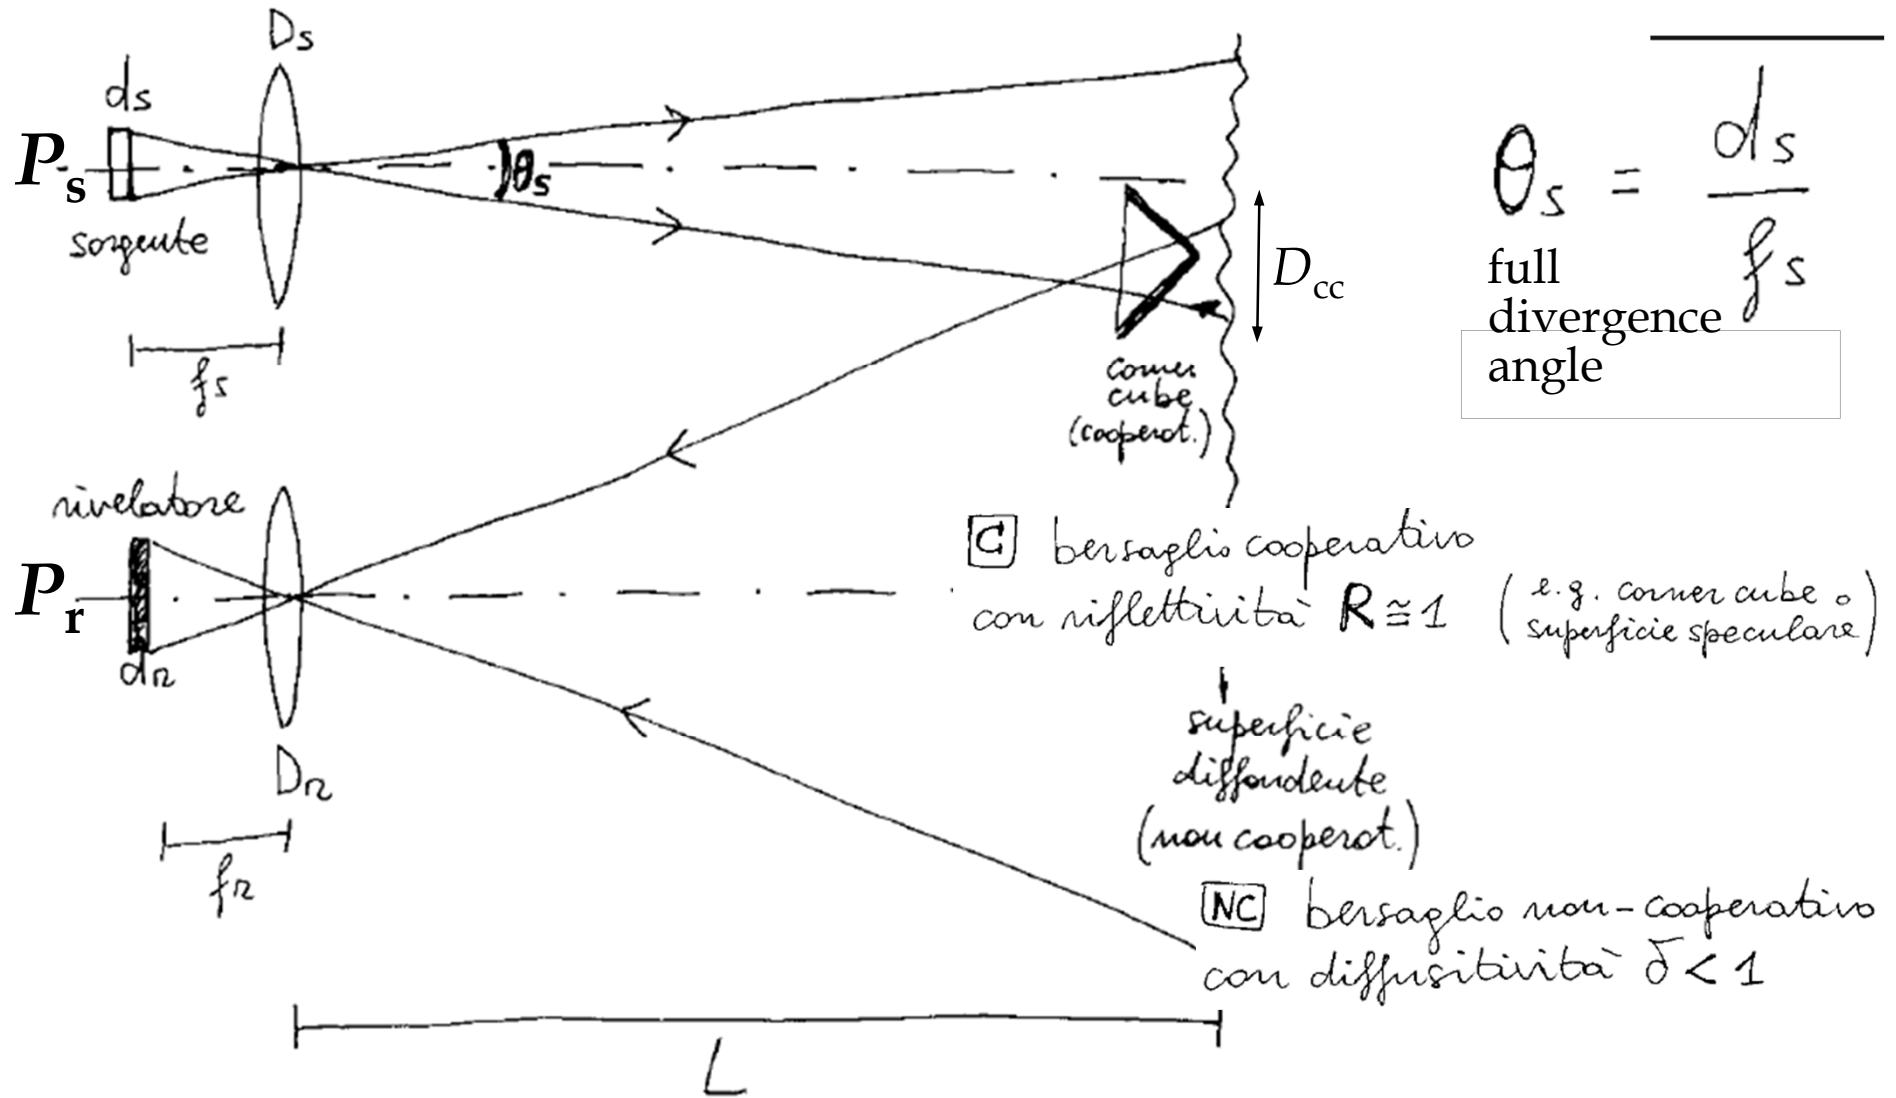 Ds
ds
Ps
sorgente
θs
fs
Dcc
corner
cube
(cooperat.)
θs = ds / fs
full
divergence
angle
rivelatore
Pr
dr
Dr
fr
C bersaglio cooperativo
con riflettività R ≅ 1 (e.g. corner cube o
superficie speculare)
superficie
diffondente
(non cooperat.)
NC bersaglio non-cooperativo
con diffusitività δ < 1
L